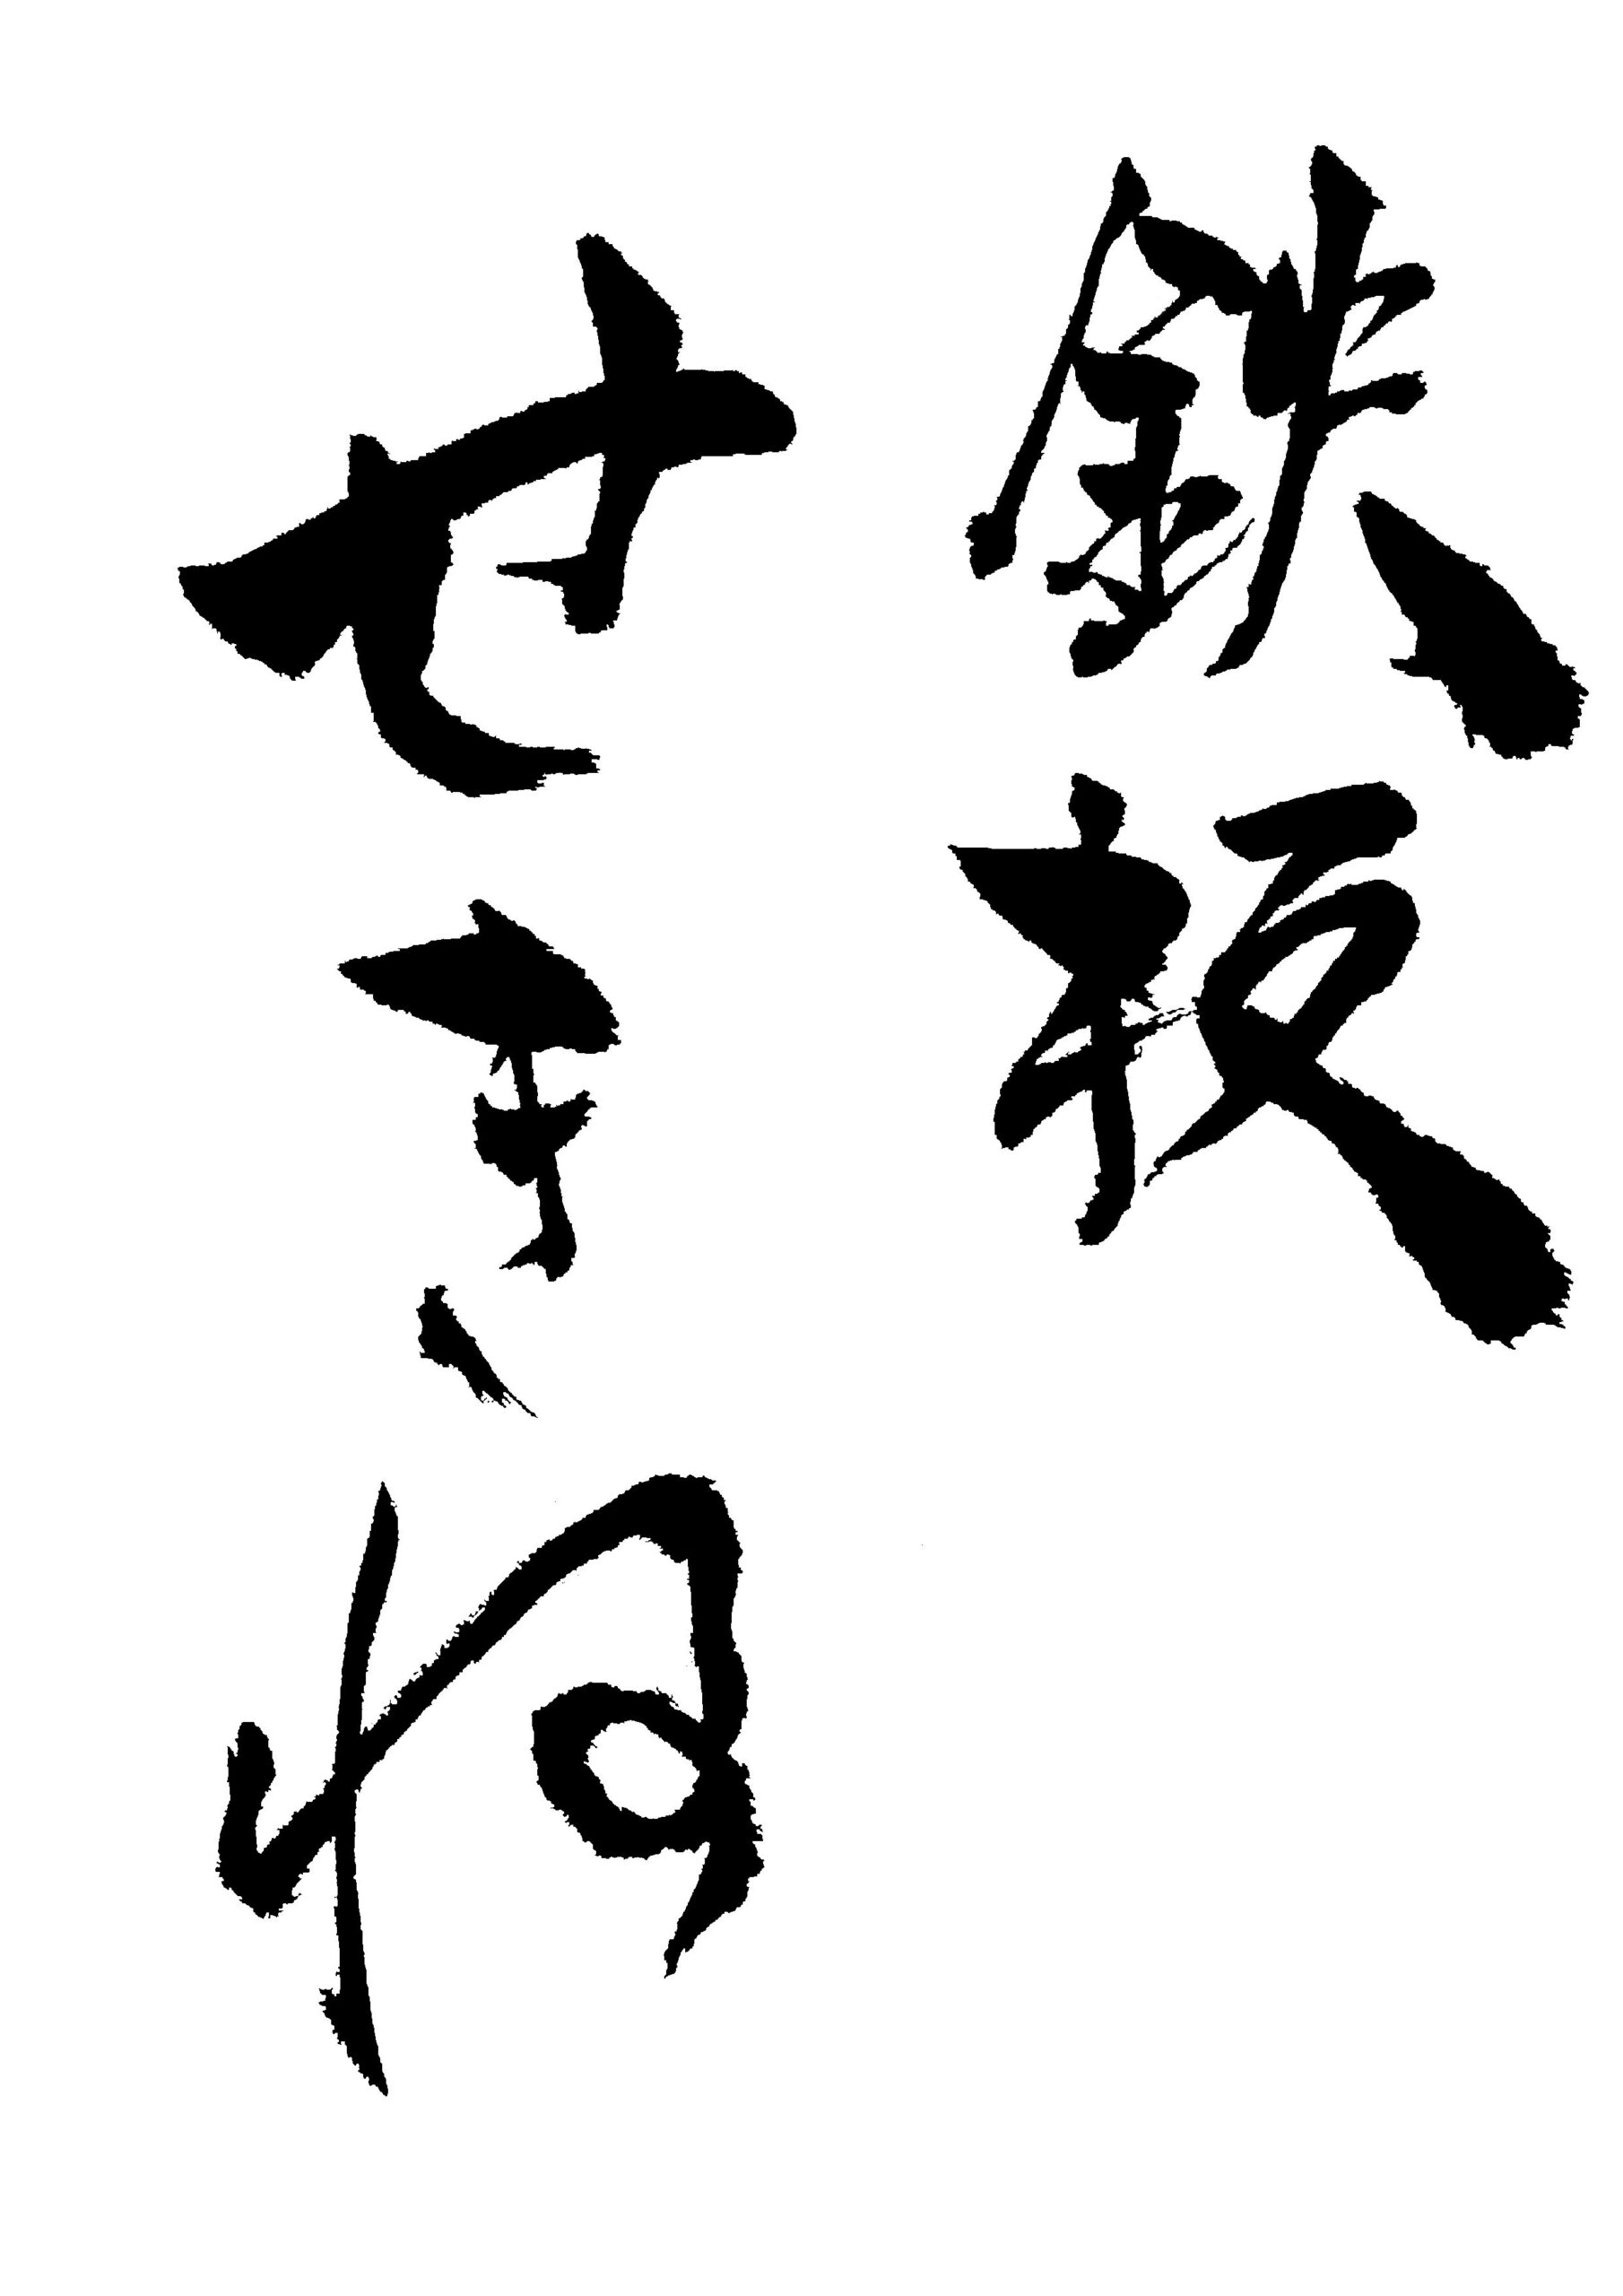 鉄板
せきね